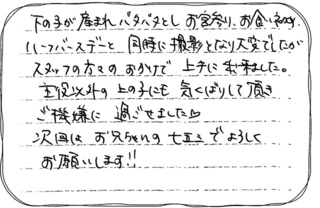 下の子が産まれバタバタとし お宮参り、お食い初め
ハーフバースデーと 同時に撮影となり大変でしたが
スタッフの方々の おかげで 上手に 出来ました。
主役以外の 上の子にも 気くばりして頂き
ご機嫌に 過ごせました♡
次回は お兄ちゃんの 七五三で よろしく
お願いします!!